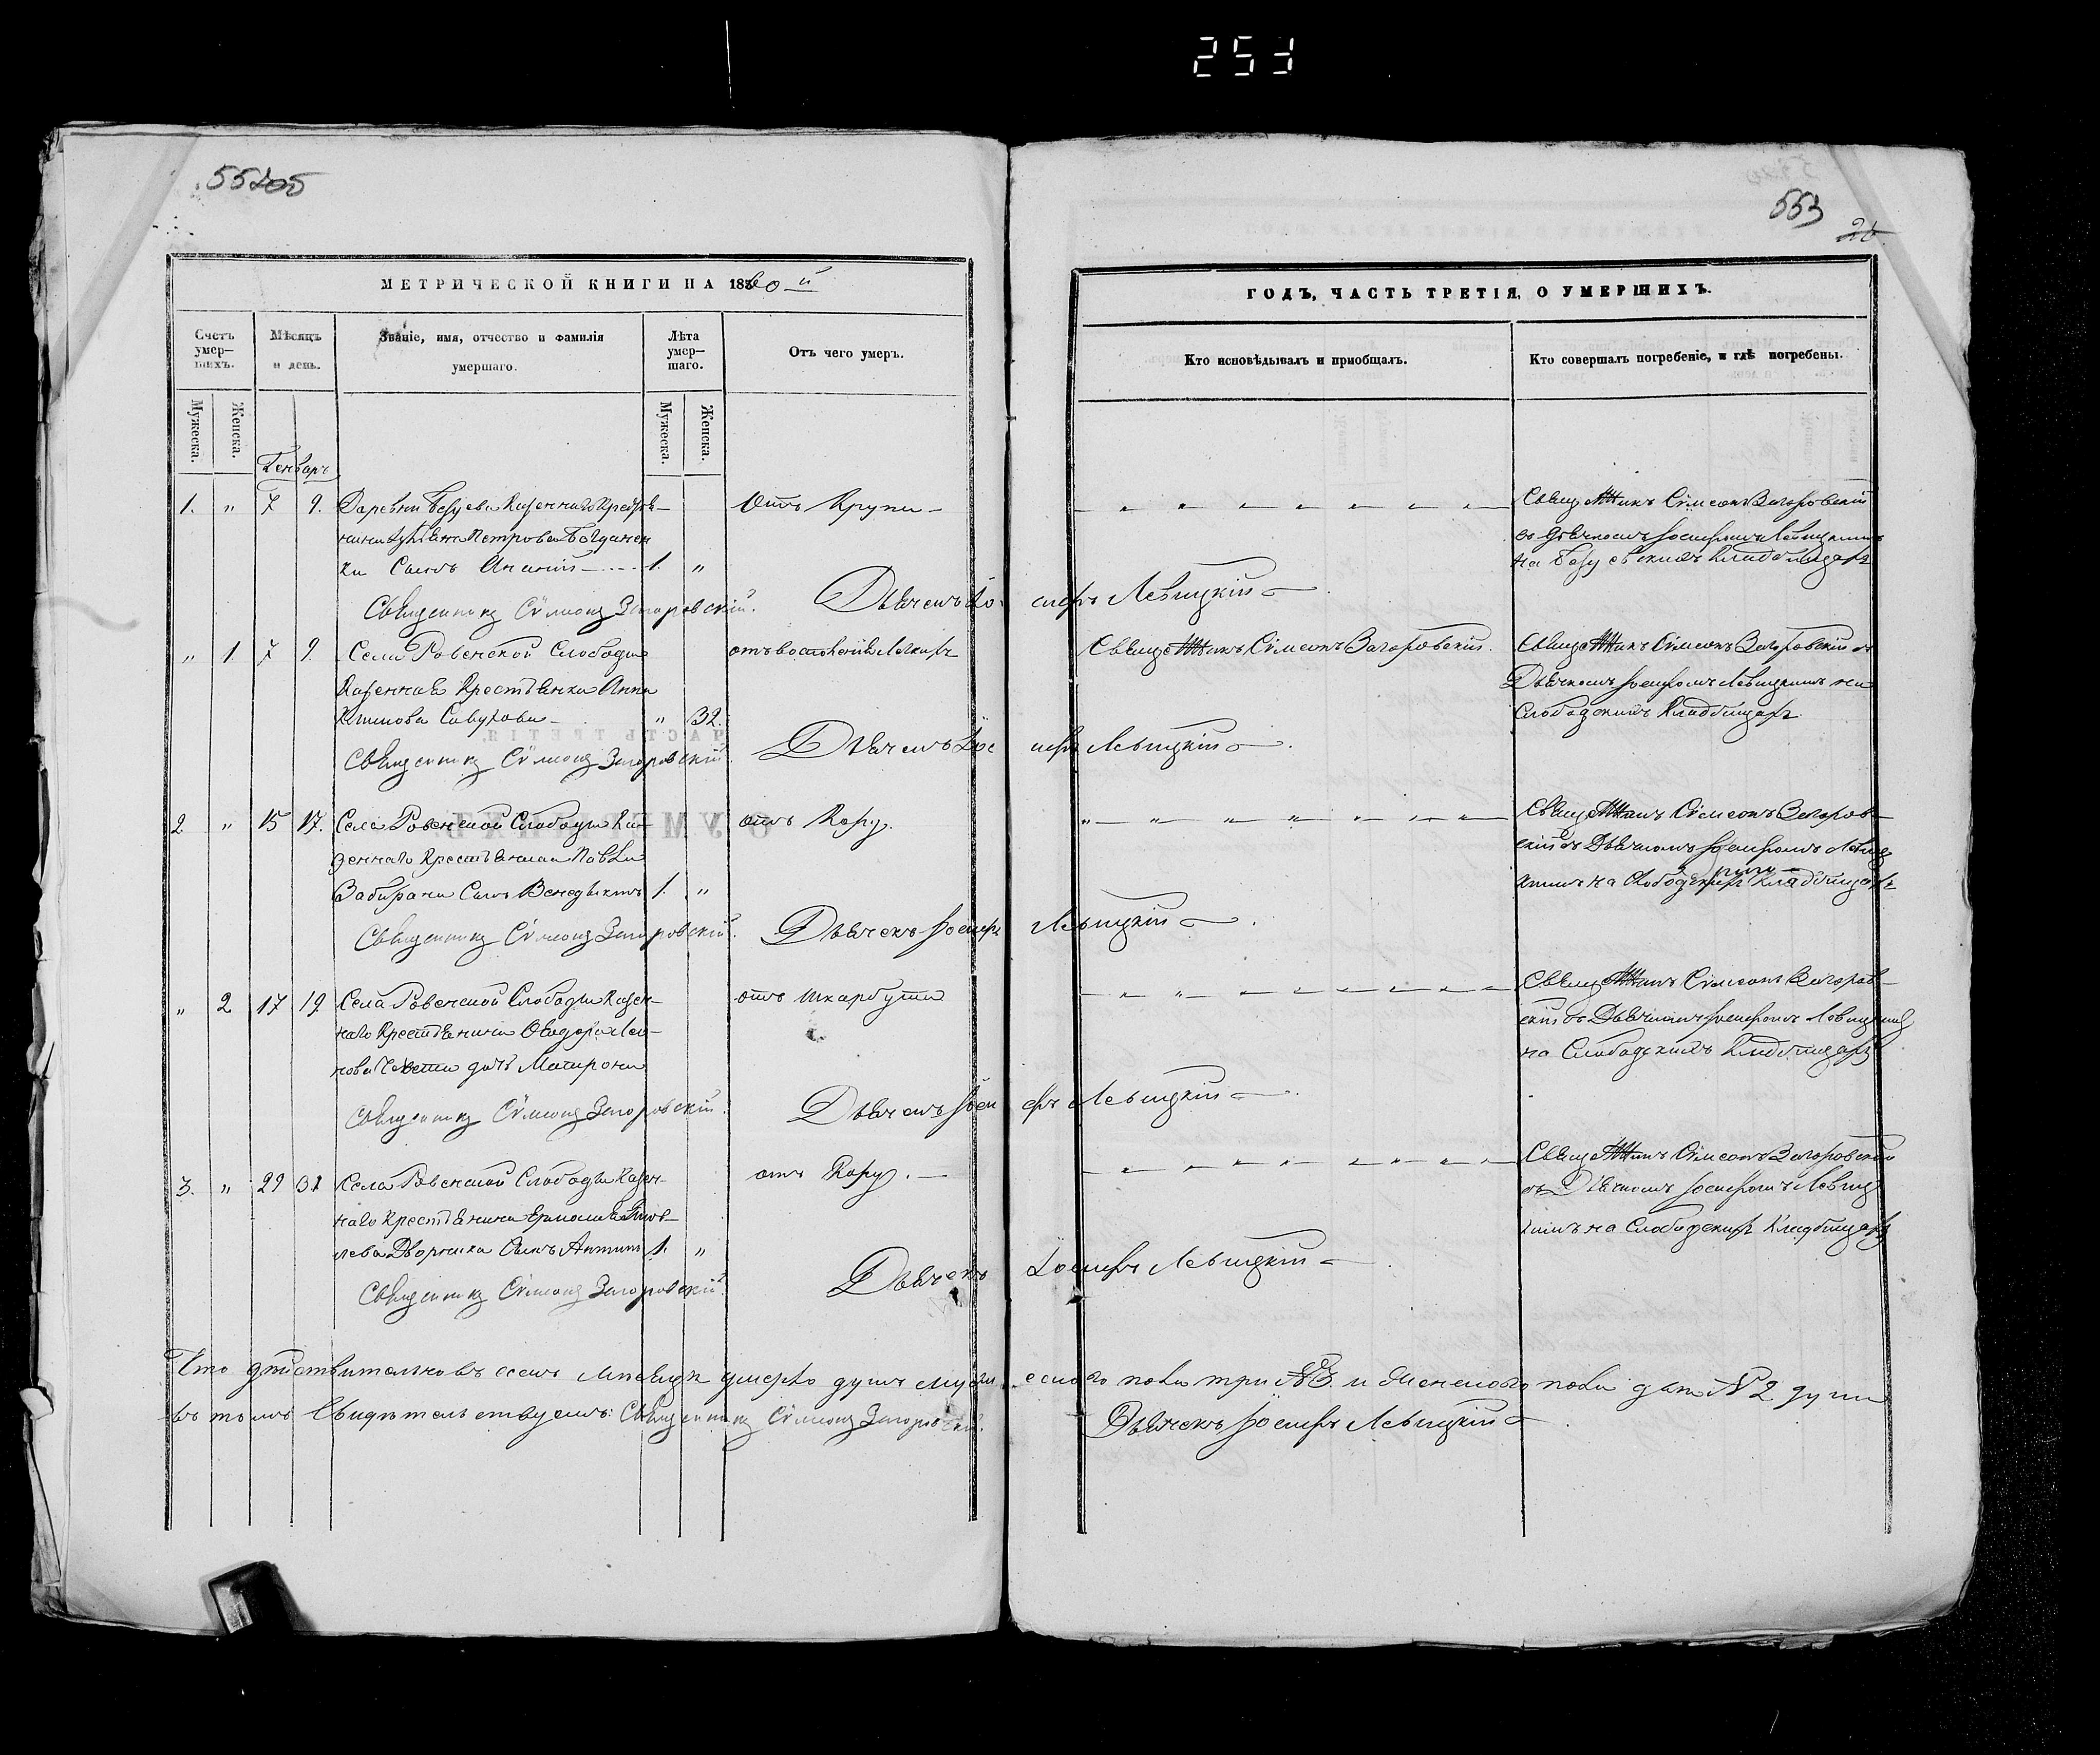 253
552об
553
26
МЕТРИЧЕСКОЙ КНИГИ НА 1860-й
ГОДЪ, ЧАСТЬ ТРЕТІЯ, О УМЕРШИХЪ.
Счетъ умер-шихъ.
Мѣсяцъ и день.
Званіе, имя, отчество и фамилія умершаго.
Лѣта умер-шаго.
Отъ чего умеръ.
Кто исповѣдывалъ и пріобщалъ.
Кто совершалъ погребеніе, и гдѣ погребены.
Мужеска.
Женска.
Мужеска.
Женска.
Генварь
1. " 7 9. Деревни Казеннаго Крестья-
нина Петрова
ки Сынъ Ананій 1. "
Отъ Крупи
Священникъ Сѵмеонъ Загоровскій
съ Дьячкомъ Іосифомъ Левицкимъ
на кладбищахъ
Священникъ Сѵмеонъ Загоровскій. Дьячекъ Іосифъ Левицкій
" 1. 7 9. Села Ровенской Слободы
Казенная Крестьянка Анна
" 32.
отъ воспаленія легкихъ
Священникъ Сѵмеонъ Загоровскій.
Священникъ Сѵмеонъ Загоровскій съ
Дьячкомъ Іосифомъ Левицкимъ на
Слободскихъ Кладбищахъ
Священникъ Сѵмеонъ Загоровскій. Дьячекъ Іосифъ Левицкій
2 " 15 17. Села Ровенской Слободы Ка-
зеннаго Крестьянина Павла
Забирани Сынъ Венедыктъ 1. "
отъ Кору.
Священникъ Сѵмеонъ Загоров-
скій съ Дьячкомъ Іосифомъ Левиц-
кимъ на Слободскихъ Кладбищахъ
Священникъ Сѵмеонъ Загоровскій. Дьячекъ Іосифъ Левицкій
" 2 17 19. Села Ровенской Слободы Казен-
наго Крестьянина Ѳеодора Лео-
нова дочь Матрона
отъ шкарбута
Священникъ Сѵмеонъ Загоров-
скій съ Дьячкомъ Іосифомъ Левицкимъ
на Слободскихъ Кладбищахъ
Священникъ Сѵмеонъ Загоровскій. Дьячекъ Іосифъ Левицкій
3. " 29 31 Села Ровенской Слободы Казен-
наго Крестьянина
Дворника Сынъ Антипъ 1. "
отъ Кору.
Священникъ Сѵмеонъ Загоровскій
съ Дьячкомъ Іосифомъ Левиц
кимъ на Слободскихъ Кладбищахъ
Священникъ Сѵмеонъ Загоровскій. Дьячекъ Іосифъ Левицкій
Что дѣйствительно въ семъ мѣсяцѣ умерло душъ мужескаго пола три №3. и женскаго пола двѣ №2 души
въ томъ Свидѣтельствуемъ: Священникъ Сѵмеонъ Загоровскій. Дьячекъ Іосифъ Левицкій